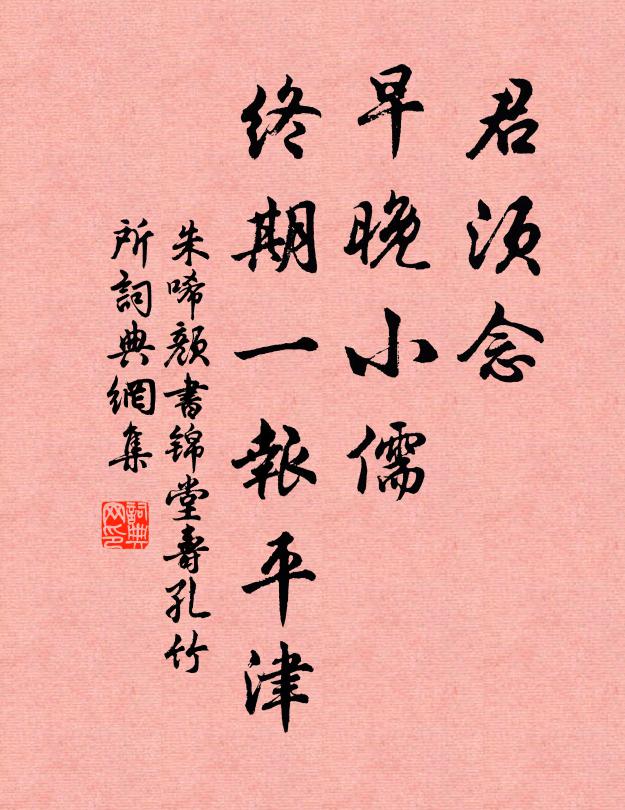 君須念
早晚小儒
終期一報平津
朱唏顏書錦堂壽孔竹
所詞典網集
詞典
网印